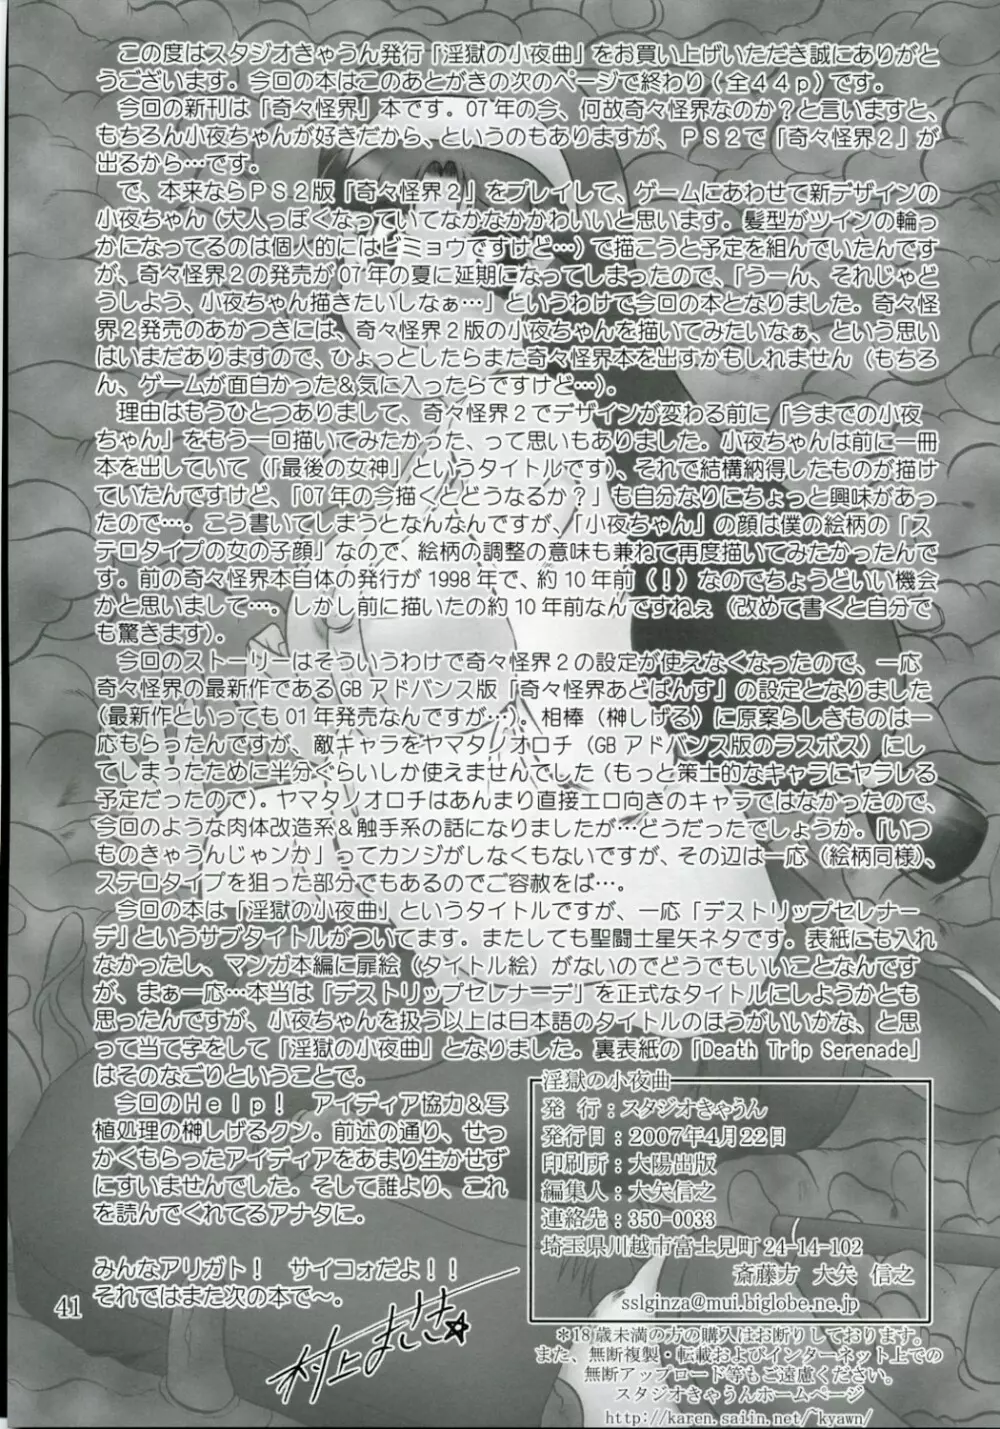 この度はスタジオきゃうん発行「淫獄の小夜曲」をお買い上げいただき誠にありがと
うございます。今回の本はこのあとがきの次のページで終わり（全４４ｐ）です。
今回の新刊は「奇々怪界」本です。07年の今、何故奇々怪界なのか？と言いますと、
もちろん小夜ちゃんが好きだから、というのもありますが、ＰＳ２で「奇々怪界２」が
出るから…です。
で、本来ならＰＳ２版「奇々怪界２」をプレイして、ゲームにあわせて新デザインの
小夜ちゃん（大人っぽくなっていてなかなかかわいいと思います。髪型がツインの輪っ
かになってるのは個人的にはビミョウですけど…）で描こうと予定を組んでいたんです
が、奇々怪界２の発売が07年の夏に延期になってしまったので、「うーん、それじゃど
うしよう、小夜ちゃん描きたいしなぁ…」というわけで今回の本となりました。奇々怪
界２発売のあかつきには、奇々怪界２版の小夜ちゃんを描いてみたいなぁ、という思い
はいまだありますので、ひょっとしたらまた奇々怪界本を出すかもしれません（もちろ
ん、ゲームが面白かった＆気に入ったらですけど…）。
理由はもうひとつありまして、奇々怪界２でデザインが変わる前に「今までの小夜
ちゃん」をもう一回描いてみたかった、って思いもありました。小夜ちゃんは前に一冊
本を出していて（「最後の女神」というタイトルです）、それで結構納得したものが描け
ていたんですけど、「07年の今描くとどうなるか？」も自分なりにちょっと興味があっ
たので…。こう書いてしまうとなんなんですが、「小夜ちゃん」の顔は僕の絵柄の「ス
テロタイプの女の子顔」なので、絵柄の調整の意味も兼ねて再度描いてみたかったんで
す。前の奇々怪界本自体の発行が1998年で、約10年前（！）なのでちょうどいい機会
かと思いまして…。しかし前に描いたの約10年前なんですねぇ（改めて書くと自分で
も驚きます）。
今回のストーリーはそういうわけで奇々怪界２の設定が使えなくなったので、一応
奇々怪界の最新作であるGBアドバンス版「奇々怪界あどばんす」の設定となりました
（最新作といっても01年発売なんですが…）。相棒（榊しげる）に原案らしきものは一
応もらったんですが、敵キャラをヤマタノオロチ（GBアドバンス版のラスボス）にし
てしまったために半分ぐらいしか使えませんでした（もっと策士的なキャラにヤラレる
予定だったので）。ヤマタノオロチはあんまり直接エロ向きのキャラではなかったので、
今回のような肉体改造系＆触手系の話になりましたが…どうだったでしょうか。「いつ
ものきゃうんじゃンか」ってカンジがしなくもないですが、その辺は一応（絵柄同様）、
ステロタイプを狙った部分でもあるのでご容赦をば…。
今回の本は「淫獄の小夜曲」というタイトルですが、一応「デストリップセレナー
デ」というサブタイトルがついてます。またしても聖闘士星矢ネタです。表紙にも入れ
なかったし、マンガ本編に扉絵（タイトル絵）がないのでどうでもいいことなんです
が、まぁ一応…本当は「デストリップセレナーデ」を正式なタイトルにしようかとも
思ったんですが、小夜ちゃんを扱う以上は日本語のタイトルのほうがいいかな、と思
って当て字をして「淫獄の小夜曲」となりました。裏表紙の「Death Trip Serenade」
はそのなごりということで。
今回のＨｅｌｐ！　アイディア協力＆写
植処理の榊しげるクン。前述の通り、せっ
かくもらったアイディアをあまり生かせず
にすいませんでした。そして誰より、これ
を読んでくれてるアナタに。
みんなアリガト！　サイコォだよ！！
それではまた次の本で〜。
村上まさき☆
41
淫獄の小夜曲
発　行：スタジオきゃうん
発行日：2007年4月22日
印刷所：大陽出版
編集人：大矢信之
連絡先：350-0033
埼玉県川越市富士見町24-14-102
斎藤方　大矢　信之
sslginza@mui.biglobe.ne.jp
＊18歳未満の方の購入はお断りしております。
また、無断複製・転載およびインターネット上での
無断アップロード等もご遠慮ください。
スタジオきゃうんホームページ
http://karen.saiin.net/~kyawn/